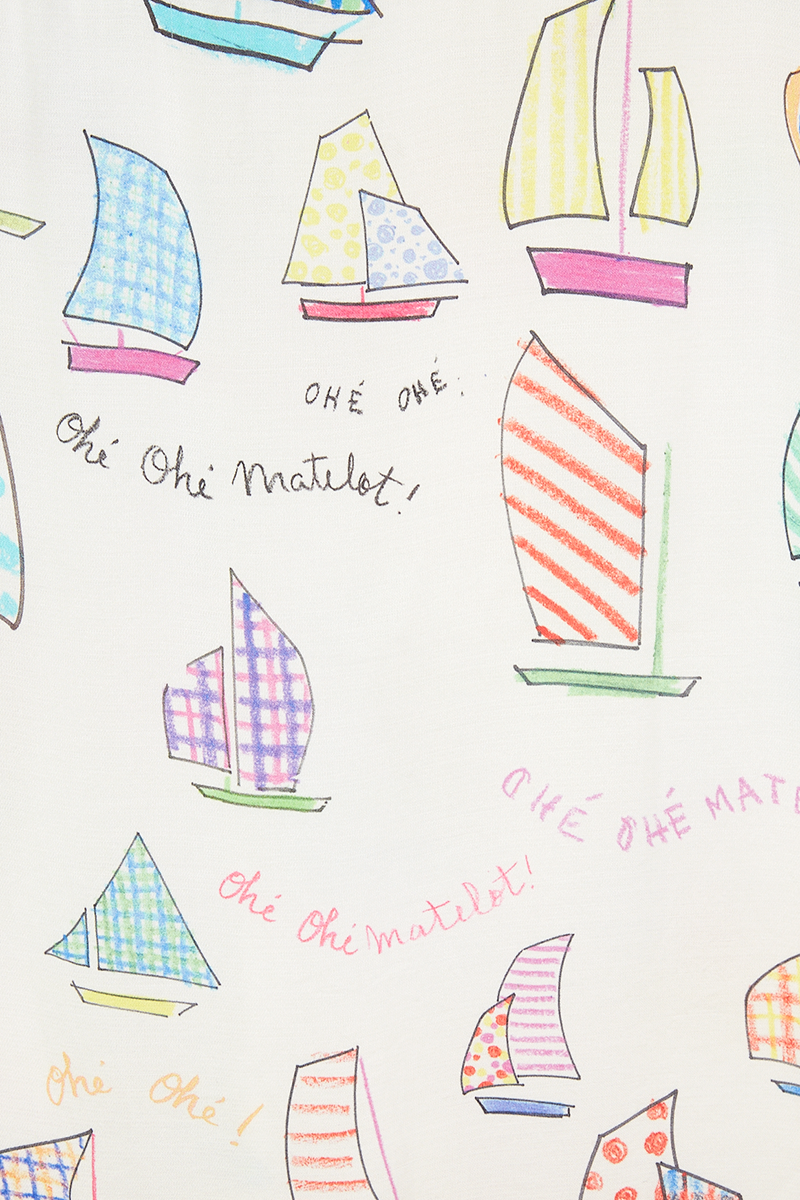 OHÉ OHÉ
Ohé Ohé Matelot!
OHÉ OHÉ MAT
Ohé Ohé Matelot!
Ohé Ohé!